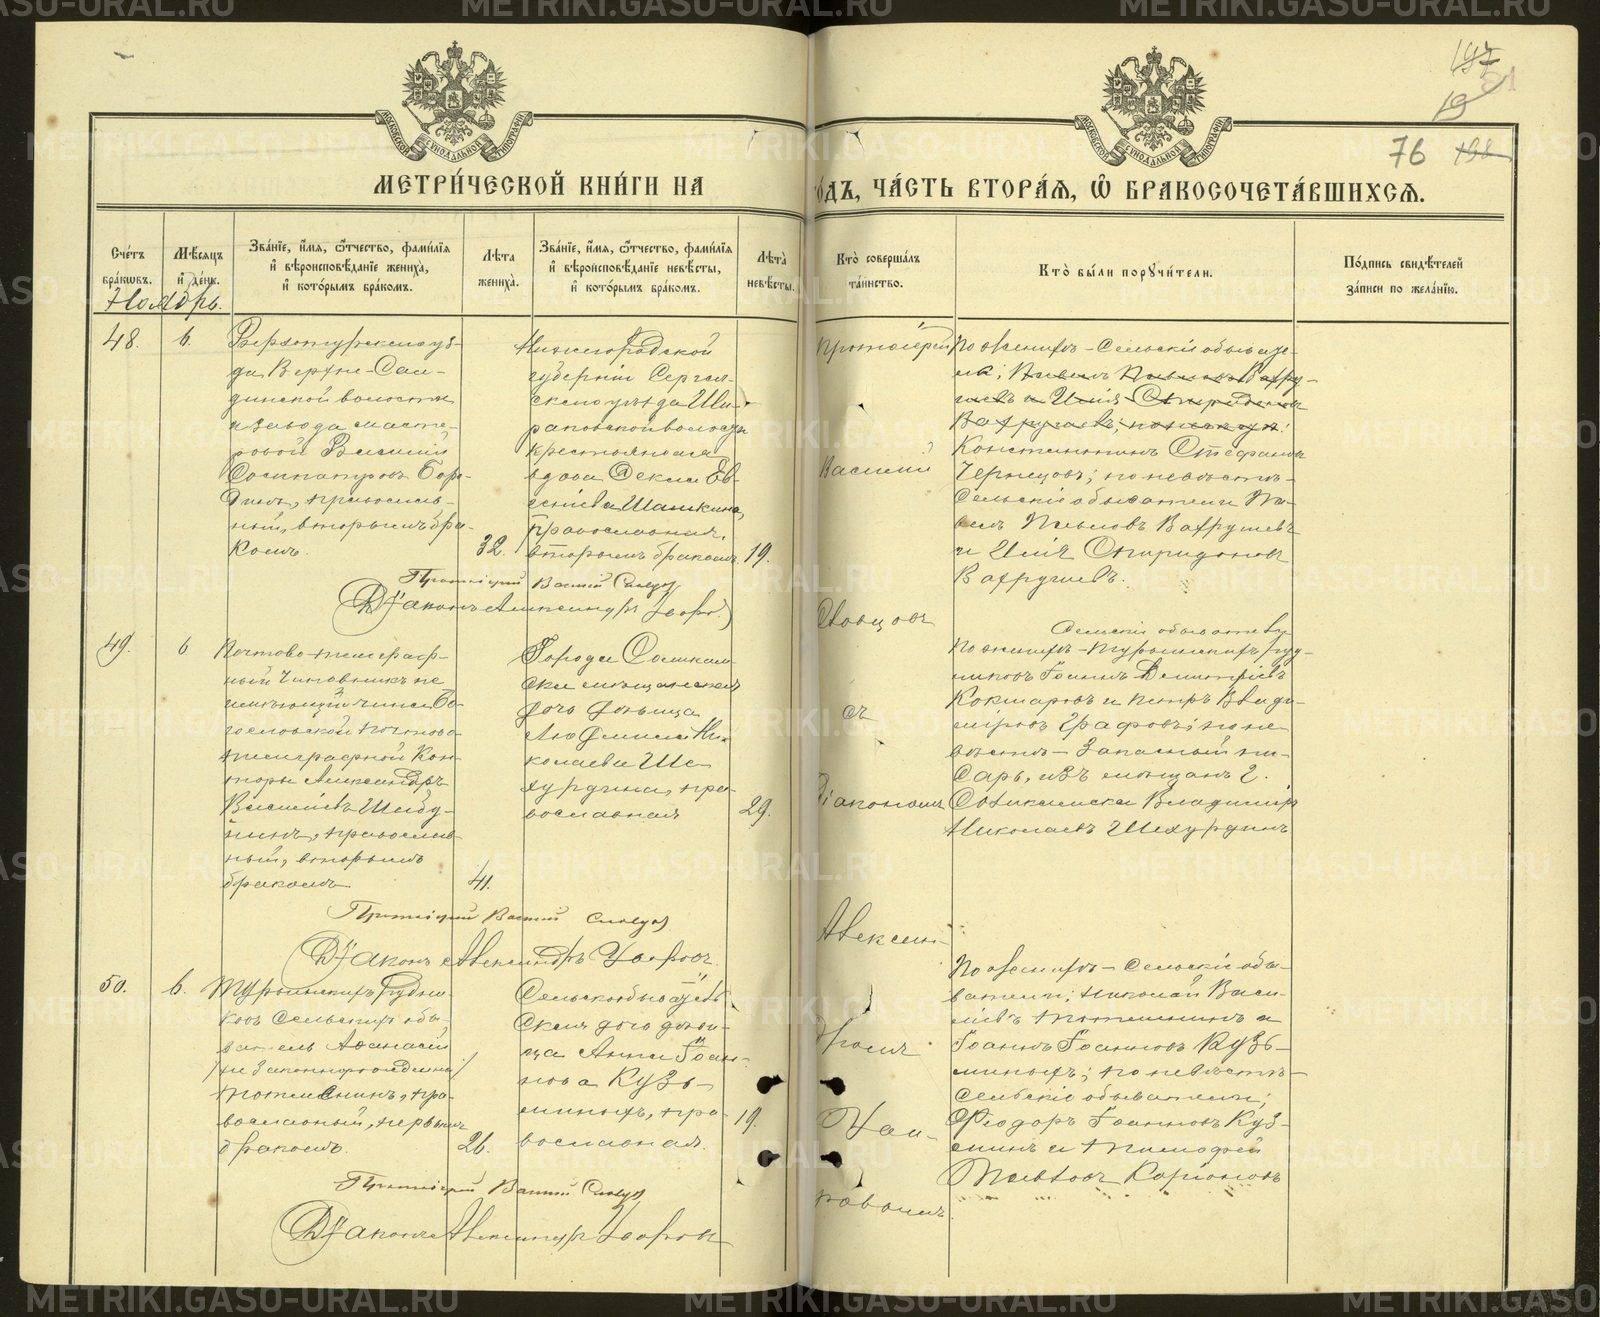 197
51
19
76 198
МОСКОВСКОЙ СѴНОДАЛЬНОЙ ТИПОГРАФІИ
МОСКОВСКОЙ СѴНОДАЛЬНОЙ ТИПОГРАФІИ
МЕТРИ́ЧЕСКОЙ КНИ́ГИ НА
ГО́ДЪ, ЧА́СТЬ ВТОРА́Я, Ѿ БРАКОСОЧЕТА́ВШИХСЯ.
Сче́тъ бра́кѡвъ.
Мѣ́сяцъ и҆ де́нь.
Зва́нїе, и҆́мя, ѻ҆́тчество, фами́лїя и҆ вѣроисповѣ́данїе жениха̀, и҆ кото́рымъ бра́комъ.
Лѣ́та жениха̀.
Зва́нїе, и҆́мя, ѻ҆́тчество, фами́лїя и҆ вѣроисповѣ́данїе невѣ́сты, и҆ кото́рымъ бра́комъ.
Лѣ́та невѣ́сты.
Кто̀ соверша́лъ та́инство.
Кто̀ бы́ли поручи́тели.
По́дпись свидѣ́телей за́писи по жела́нїю.
Ноябрь.
48.
6.
Верхотурскаго уѣз-
да Верхне-Сал-
динской волости
и завода масте-
ровой Василий
Сосипатровъ Боро-
динъ, православ-
ный, вторымъ бра-
комъ.
32.
Нижегородской
губерніи Сергач-
скаго уѣзда
волости
крестьянская
вдова Ѳекла Ев-
геніева Шашкина,
православная,
вторымъ бракомъ.
19.
Протоіерей
Василий
Словцовъ
съ
діакономъ
Алексан-
дромъ
Ува-
ровымъ.
По женихѣ - Сельскіе обывате-
ли; Павелъ Павловъ Вахру-
шевъ и Илія Спиридоновъ
Вахрушевъ;
Константинъ Стефановъ
Чернцовъ; по невѣстѣ -
Сельскіе обыватели Па-
велъ Павловъ Вахрушевъ
и Илія Спиридоновъ
Вахрушевъ.
Протоіерей Василий Словцовъ
Діаконъ Александръ Уваровъ
49.
6
Почтово-телеграф-
ный чиновникъ не
имѣющій чина Бо-
гословской почтово-
телеграфной Кон-
торы Александръ
Василіевъ Шабу-
нинъ, православ-
ный, вторымъ
бракомъ
41.
Города Соликам-
ска мѣщанская
дочь дѣвица
Людмила Ни-
колаева Ше-
хурдина, пра-
вославная
29.
Сельскіе обыватели
По женихѣ - Турьинскихъ руд-
никовъ Іоаннъ Димитріевъ
Кокшаровъ и Петръ Влади-
міровъ Графовъ; по не-
вѣстѣ - Запасный пи-
сарь, изъ мѣщанъ г.
Соликамска Владиміръ
Николаевъ Шехурдинъ
Протоіерей Василий Словцовъ
Діаконъ Александръ Уваровъ.
50.
6.
Турьинскихъ Рудни-
ковъ Сельскій обы-
ватель Аѳанасій
/незаконнорожденный/
Потемкинъ, пра-
вославный, первымъ
бракомъ.
26.
Сельскообыватель-
ская дочь дѣви-
ца Анна Іоан-
нова Кузь-
миныхъ, пра-
вославная.
19.
По женихѣ - Сельскіе обы-
ватели; Николай Васи-
ліевъ Потемкинъ и
Іоаннъ Іоанновъ Кузь-
миныхъ; по невѣстѣ -
Сельскіе обыватели;
Ѳеодоръ Іоанновъ Куз-
минъ и Тимофей
Протоіерей Василий Словцовъ
Діаконъ Александръ Уваровъ
METRIKI.GASO-URAL.RU